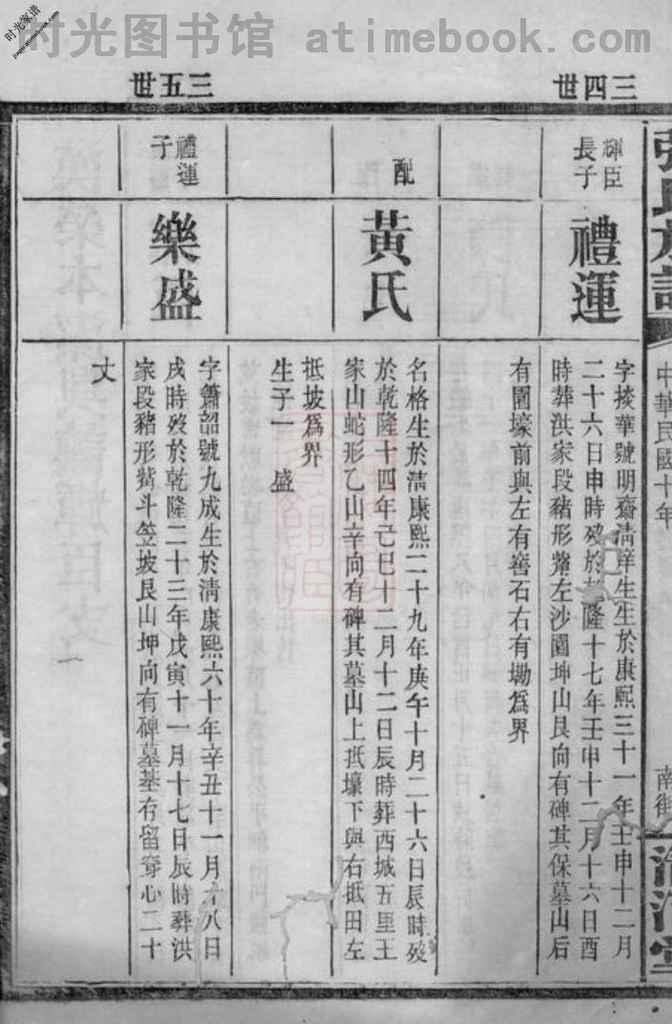 时光图书馆 atimebook.com
时光家谱
三四世
三五世
張氏族譜
中華民國十年
南街
清河堂
輝臣
長子
禮運
字掞華號明齋清庠生生於康熙三十一年壬申十二月
二十六日申時歿於乾隆十七年壬申十二月十六日酉
時葬洪家段豬形嘴左沙園坤山艮向有碑其保墓山后
有圍壕前與左有窖石右有墈為界
配
黃氏
名格生於清康熙二十九年庚午十月二十六日辰時歿
於乾隆十四年己巳十二月十二日辰時葬西城五里王
家山蛇形乙山辛向有碑其墓山上抵壕下與右抵田左
抵坡為界
生子一 盛
禮運
子
樂盛
字簫韶號九成生於清康熙六十年辛丑十一月十八日
戌時歿於乾隆二十三年戊寅十一月十七日辰時葬洪
家段豬形嘴斗笠坡艮山坤向有碑墓基存留穿心二十
丈